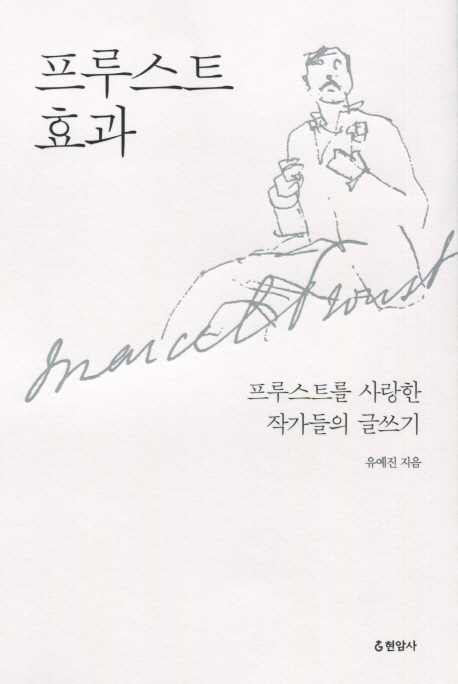 프루스트
효과
Marcel Proust
프루스트를 사랑한
작가들의 글쓰기
유예진 지음
현암사